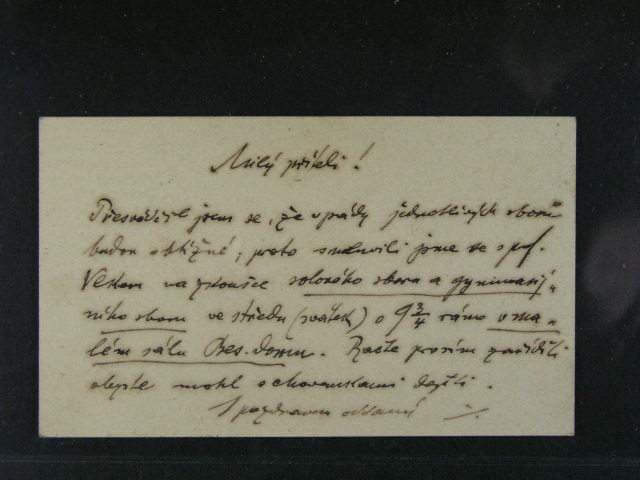 Milý příteli!
Přesvědčil jsem se, že vpády jednotlivých sborů
budou obtížné, proto smluvili jsme se s prof.
na zkoušce sólového sboru a gymnasij-
ního sboru ve středu (svátek) o 9 3/4 ráno v ma-
lém sálu Bes. domu. Račte prosím zaříditi
abyste mohl s chovankami dojíti.
S pozdravem oddaný